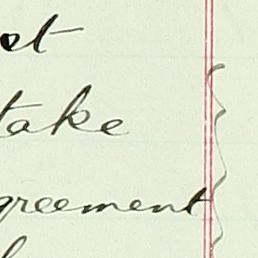 take
greement